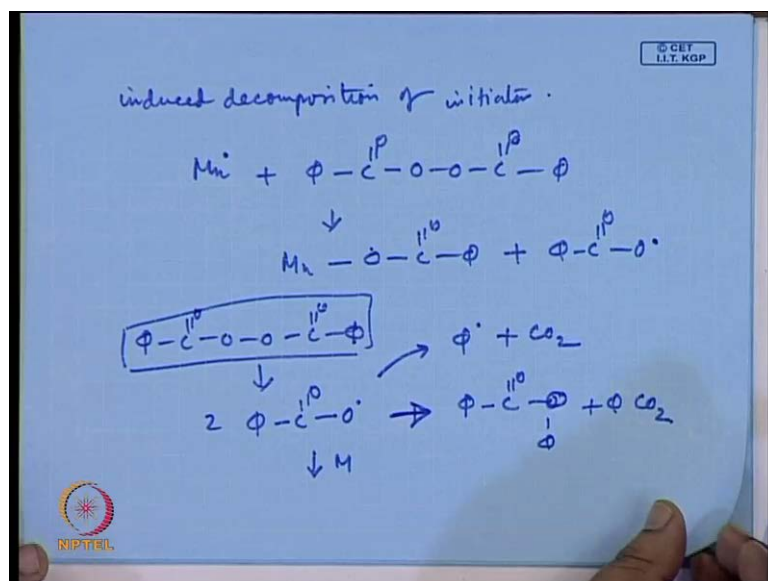 © CET
I.I.T. KGP
induced decomposition of initiator.
Mn• + Φ - C(=O) - O - O - C(=O) - Φ
↓
Mn - O - C(=O) - Φ + Φ - C(=O) - O•
Φ - C(=O) - O - O - C(=O) - Φ
↓ ↗ Φ• + CO2
2 Φ - C(=O) - O• → Φ - C(=O) - O - Φ + Φ CO2
↓ M
NPTEL